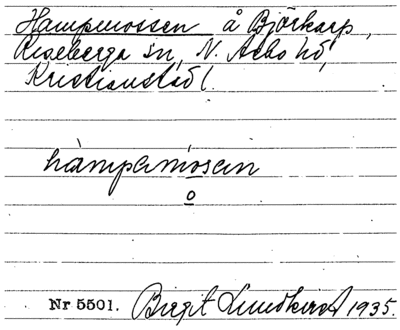 Hampmossen å Björkarp,
Riseberga sn, N. Åsbo hd,
Kristianstad l.
hàmpamósen
o
Nr 5501. Birgit Lundkvist 1935.